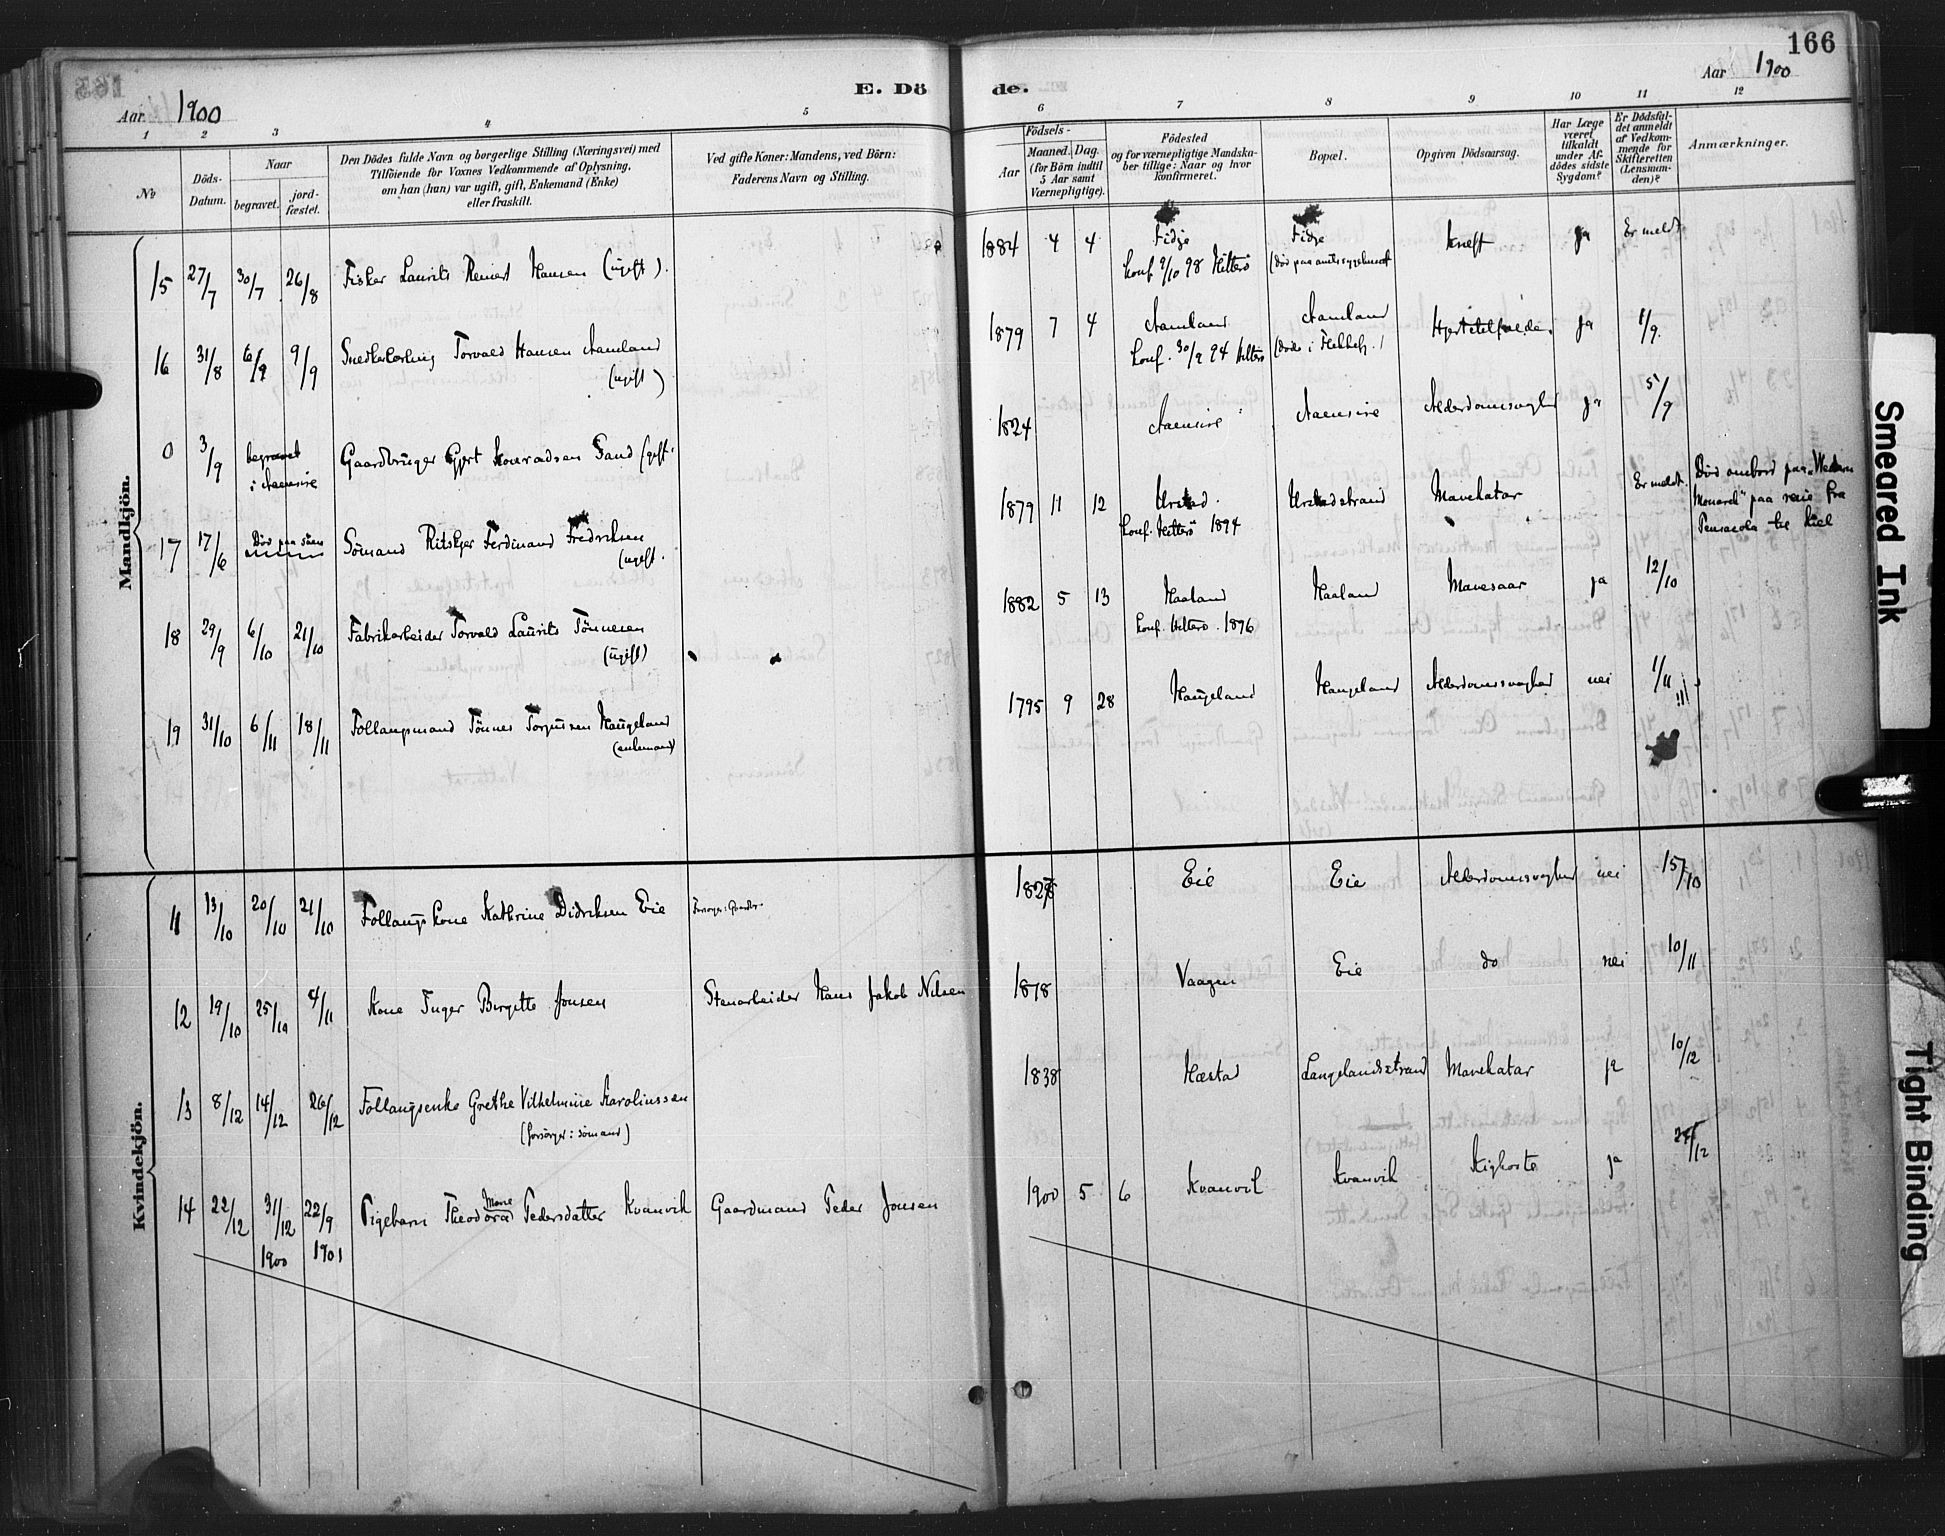 166
Aar 1900
E. Dö
de.
Aar 1900
1 2 3 4 5 6 7 8 9 10 11 12
№
Döds-Datum.
Naar
begravet.
jord-fæstet.
Den Dödes fulde Navn og borgerlige Stilling (Næringsvei) med
Tilföiende for Voxnes Vedkommende af Oplysning,
om han (hun) var ugift, gift, Enkemand (Enke)
eller fraskilt.
Ved gifte Koner: Mandens, ved Börn:
Faderens Navn og Stilling.
Födsels-
Aar
Maaned. Dag.
(for Börn indtil
5 Aar samt
Værnepligtige).
Födested
og for værnepligtige Mandska-
ber tillige: Naar og hvor
konfirmeret.
Bopæl.
Opgiven Dödsaarsag.
Har Læge
været
tilkaldt
under Af-
dödes sidste
Sygdom?
Er Dödsfal-
det anmeldt
af Vedkom-
mende for
Skifteretten
(Lensman-
den)?
Anmærkninger.
Mandkjön.
15 27/7 30/7 26/8 Fisker Laurits Reinert Hansen (ugift). 1884 4 4 Fidje Fidje Kræft ja Er meldt
konf. 2/10 98 Hitterö (död paa amtssygehuset
16 31/8 6/9 9/9 Snedkerlærling Torvald Hansen Aamland 1879 7 4 Aamland Aamland Hjertelfeide. ja 1/9.
(ugift) konf. 30/9 94 Hitterö (döde i Flekkefj.)
0 3/9 begravet Gaardbruger Gjert Konradsen Sand (gift. 1824 Aaensire Aaensire Alderdomssvaghed ja 5/9
i Aaensire
17 17/6 Död paa söen Sömand Ritskjer Ferdinand Fredriksen 1879 11 12 Urstad. Urstadstrand Mavekatar Er meldt. Död ombord paa "Western
(ugift. konf. Hitterö 1894 Monarch" paa reise fra
Pensacola til Kiel
18 29/9 6/10 21/10 Fabrikarbeider Torvald Laurits Tönnesen 1882 5 13 Haaland Haaland Mavesaar ja 12/10
(ugift) konf. Hitterö. 1896
19 31/10 6/11 18/11 Follaugsmand Tönnes Torjussen Haugeland 1795 9 28 Haugeland Haugeland Alderdomssvaghed nei 1/11
(enkemand) !!!
Kvindekjön.
11 13/10 20/10 21/10 Follaugskone Kathrine Didriksen Eie Eie Eie Alderdomssvaghed nei 15/10
12 19/10 25/10 4/11 Kone Inger Birgitte Jonsen Stenarbeider Hans Jakob Nilsen 1818 Vaagen Eie do nei 10/11
13 8/12 14/12 26/12 Follaugsenke Grethe Vilhelmine Karoliussen 1838 Hæstad Langelandsstrand Mavekatar ja 10/12
(forsörger: sömand)
14 22/12 31/12 22/9 Pigebarn Theodora Marie Pedersdatter Kvanvik Gaardmand Peder Jonsen 1900 5 6 Kvanvik Kvanvik Kighoste ja
1900 1901
Smeared Ink
Tight Binding